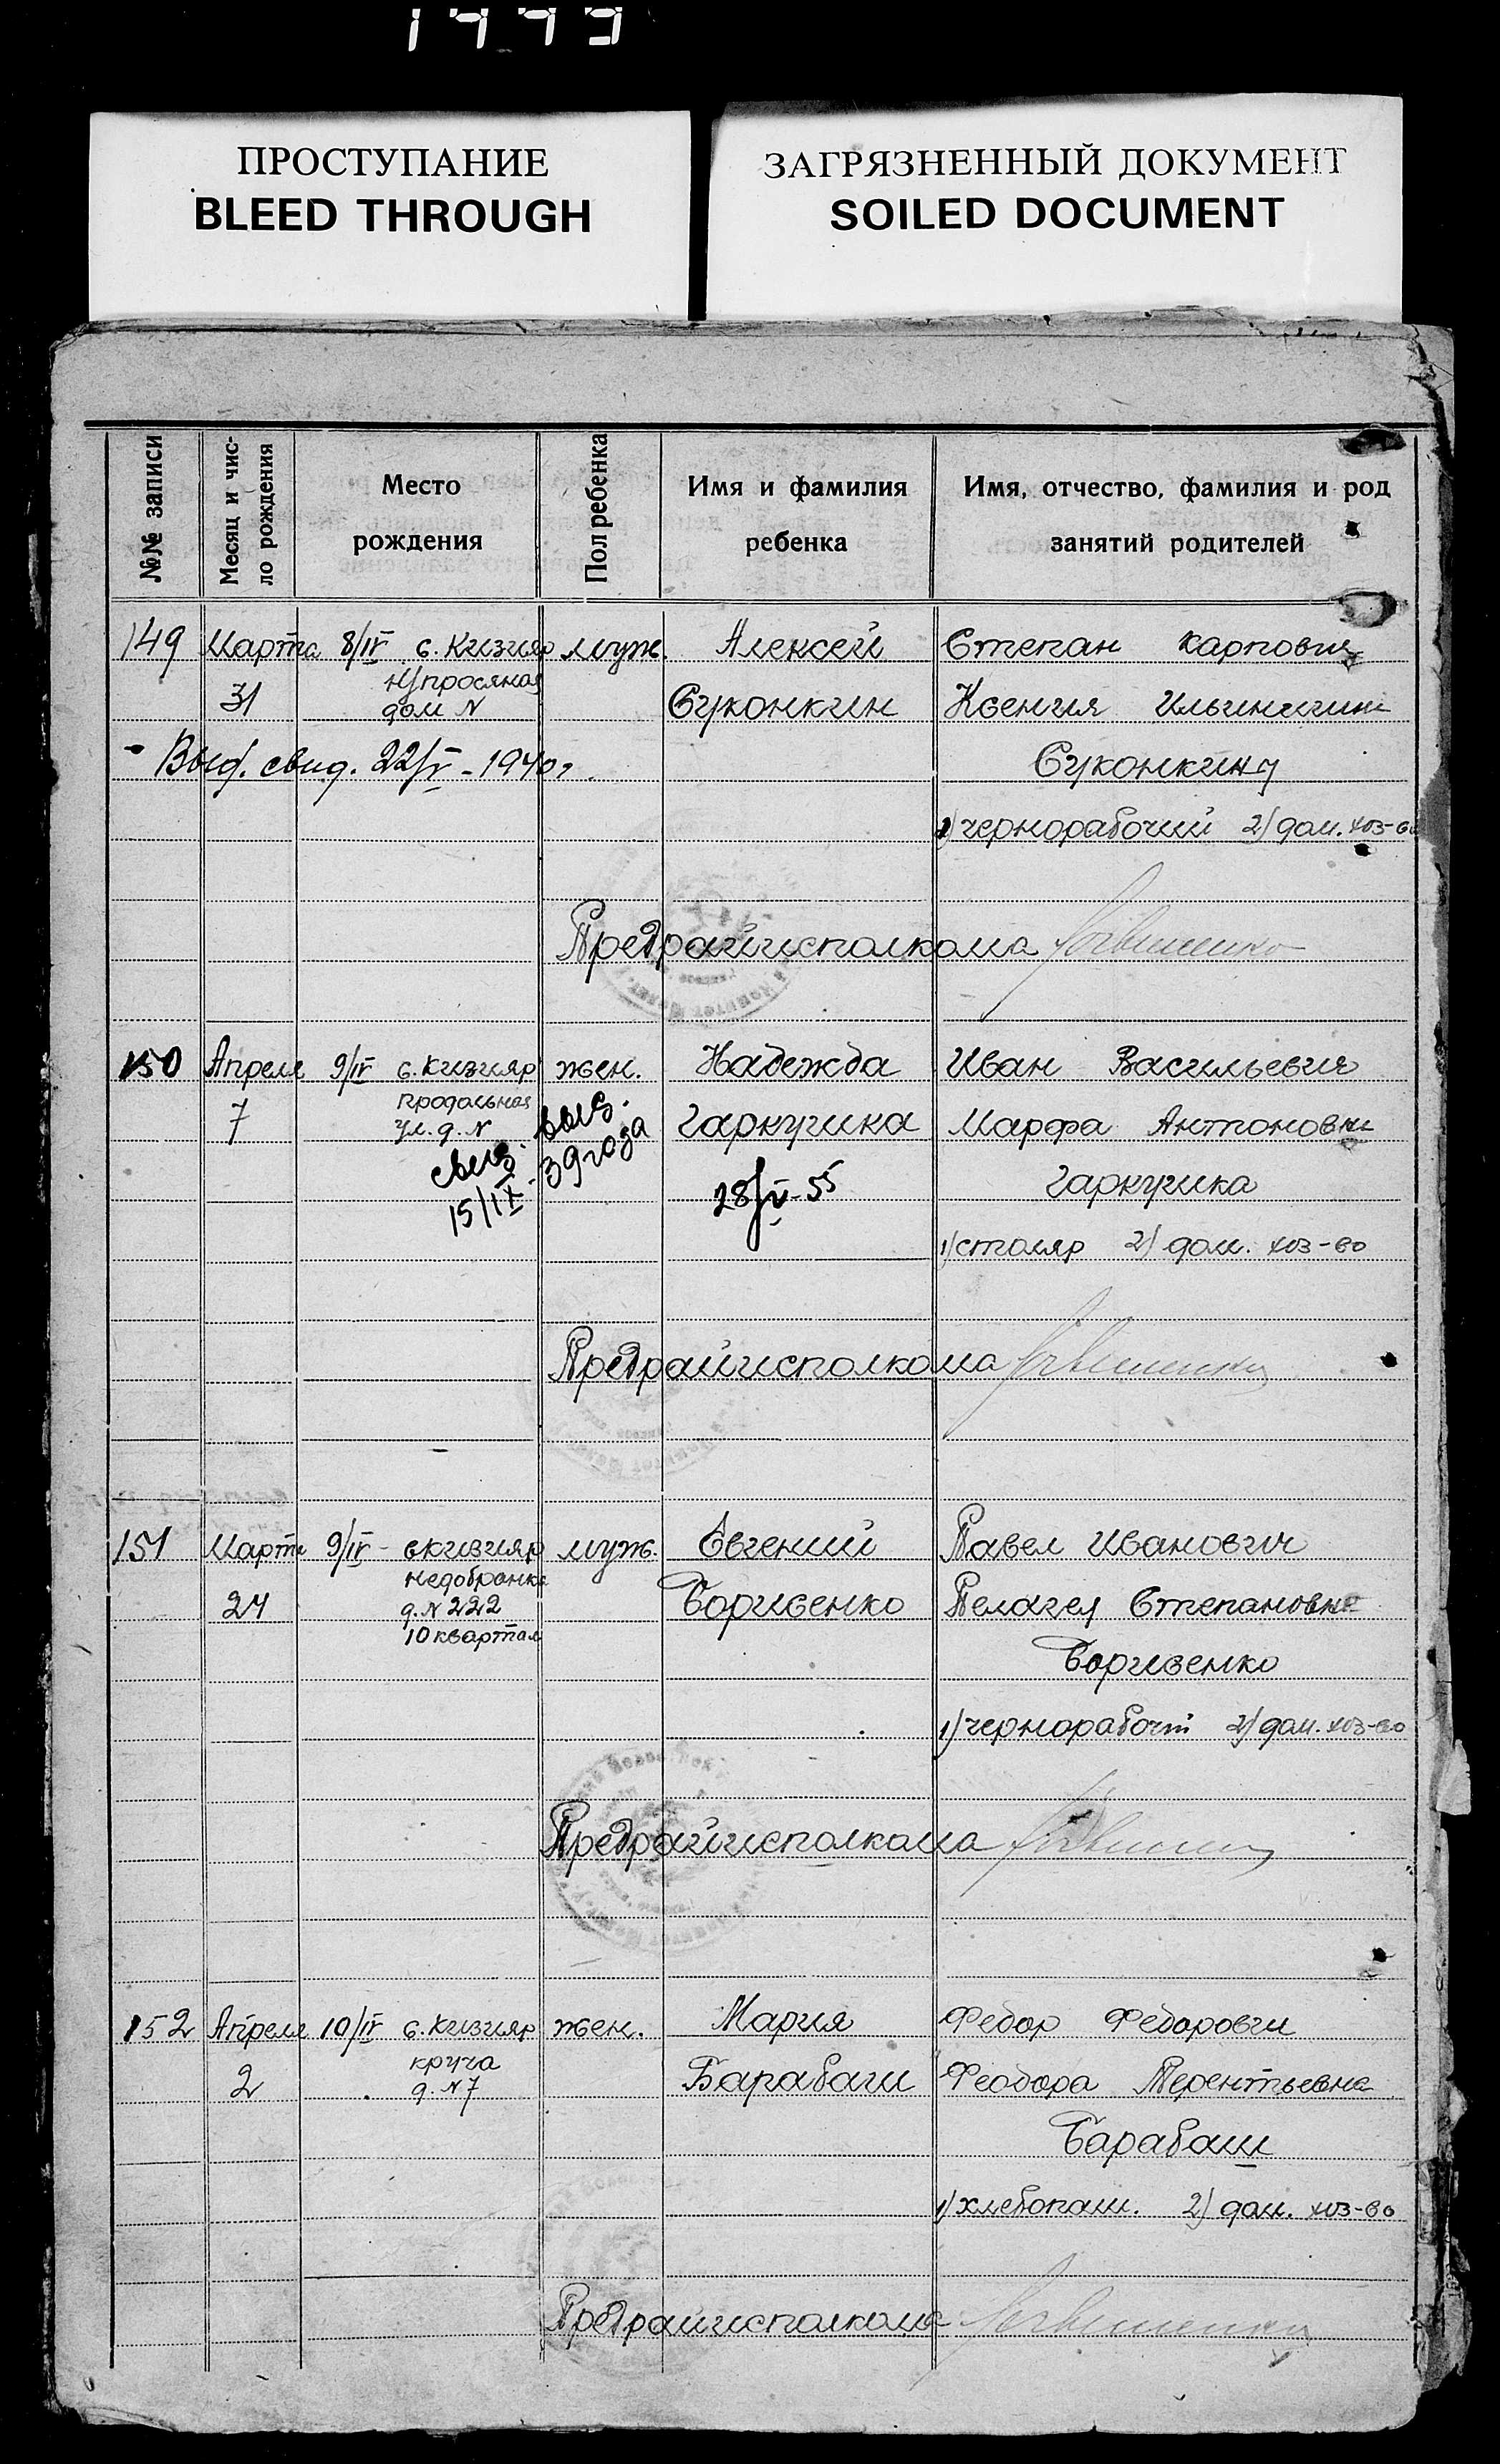 ПРОСТУПАНИЕ
BLEED THROUGH
ЗАГРЯЗНЕННЫЙ ДОКУМЕНТ
SOILED DOCUMENT
№№ записи
Месяц и чис-
ло рождения
Место
рождения
Пол ребенка
Имя и фамилия
ребенка
Имя, отчество, фамилия и род
занятий родителей
149 Марта 8/IV с. Кизияр муж. Алексей Степан Карпович
31 дом N Суконкин Ксения Ильинична
Выд. свид. 22/V - 1940г. Суконкины
1) чернорабочий 2) дом. хоз-во
Предрайисполкома
150 Апреля 9/IV с. Кизияр жен. Надежда Иван Васильевич
7 Продольная
ул. д. N Гаркушка Марфа Антоновна
15/IX 39 года 28/V-55 Гаркушка
1) столяр 2) дом. хоз-во
Предрайисполкома
151 Марта 9/IV - с Кизияр муж. Евгений Павел Иванович
24 д. N 222 Борисенко Пелагея Степановна
10 квартал
Борисенко
1) чернорабочий 2) дом. хоз-во
Предрайисполкома
152 Апреля 10/IV с. Кизияр жен. Мария Федор Федорович
2 круча
д. N 7 Барабаш Феодора Терентьевна
Барабаш
1) хлебопаш. 2) дом. хоз-во
Предрайисполкома